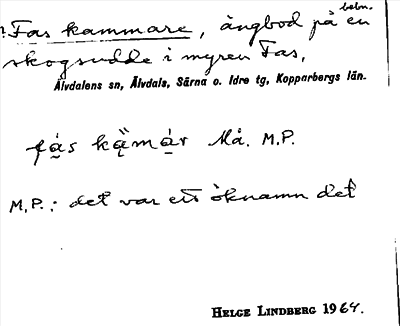 bebn.
Fas kammare, ängbod på en
skogsudde i myren Fas,
Älvdalens sn, Älvdals, Särna o. Idre tg, Kopparbergs län.
Må. M.P.
M.P.: det var ett öknamn det
HELGE LINDBERG 1964.